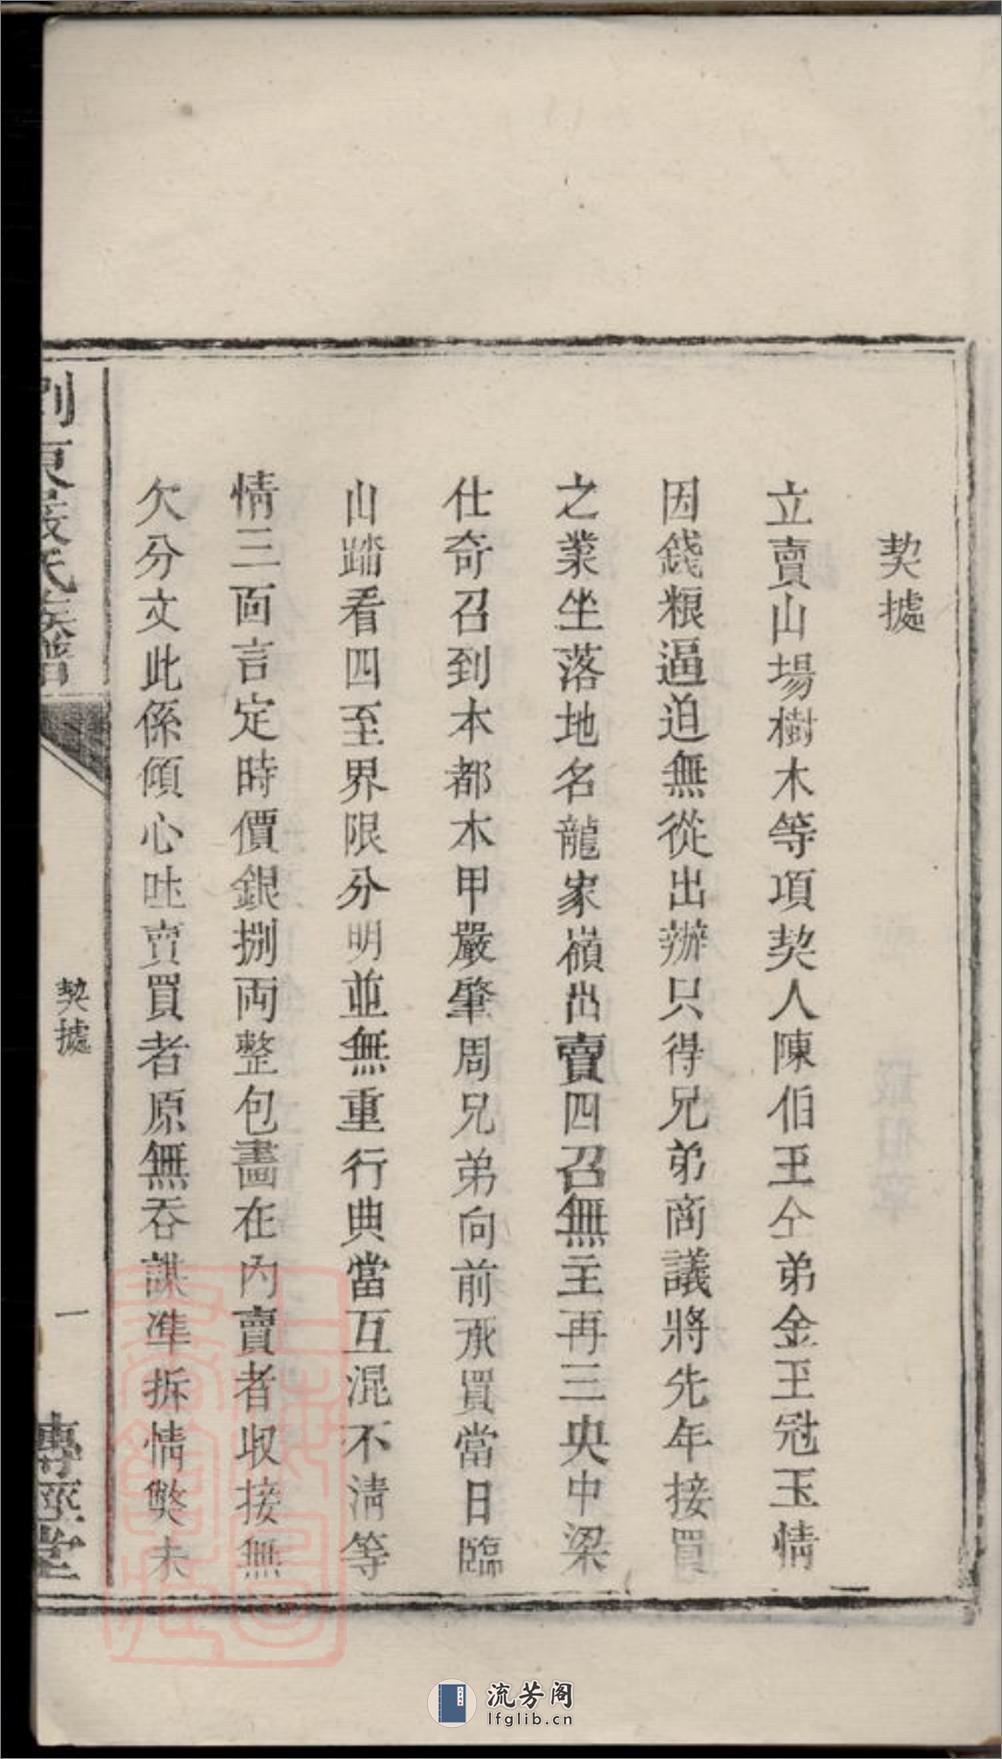 契據
立賣山場樹木等項契人陳伯玉仝弟金玉冠玉情
因錢粮逼迫無從出辦只得兄弟商議將先年接買
之業坐落地名龍家嶺出賣四召無主再三央中梁
仕奇召到本都木甲嚴肇周兄弟向前承買當日臨
山踏看四至界限分明並無重行典當互混不清等
情三面言定時價銀捌両整包畵在內賣者収接無
欠分文此係傾心吐賣買者原無吞謀准拆情獘未
瀏東嚴氏族譜
契據
一
專經堂
流芳阁
lfglib.cn